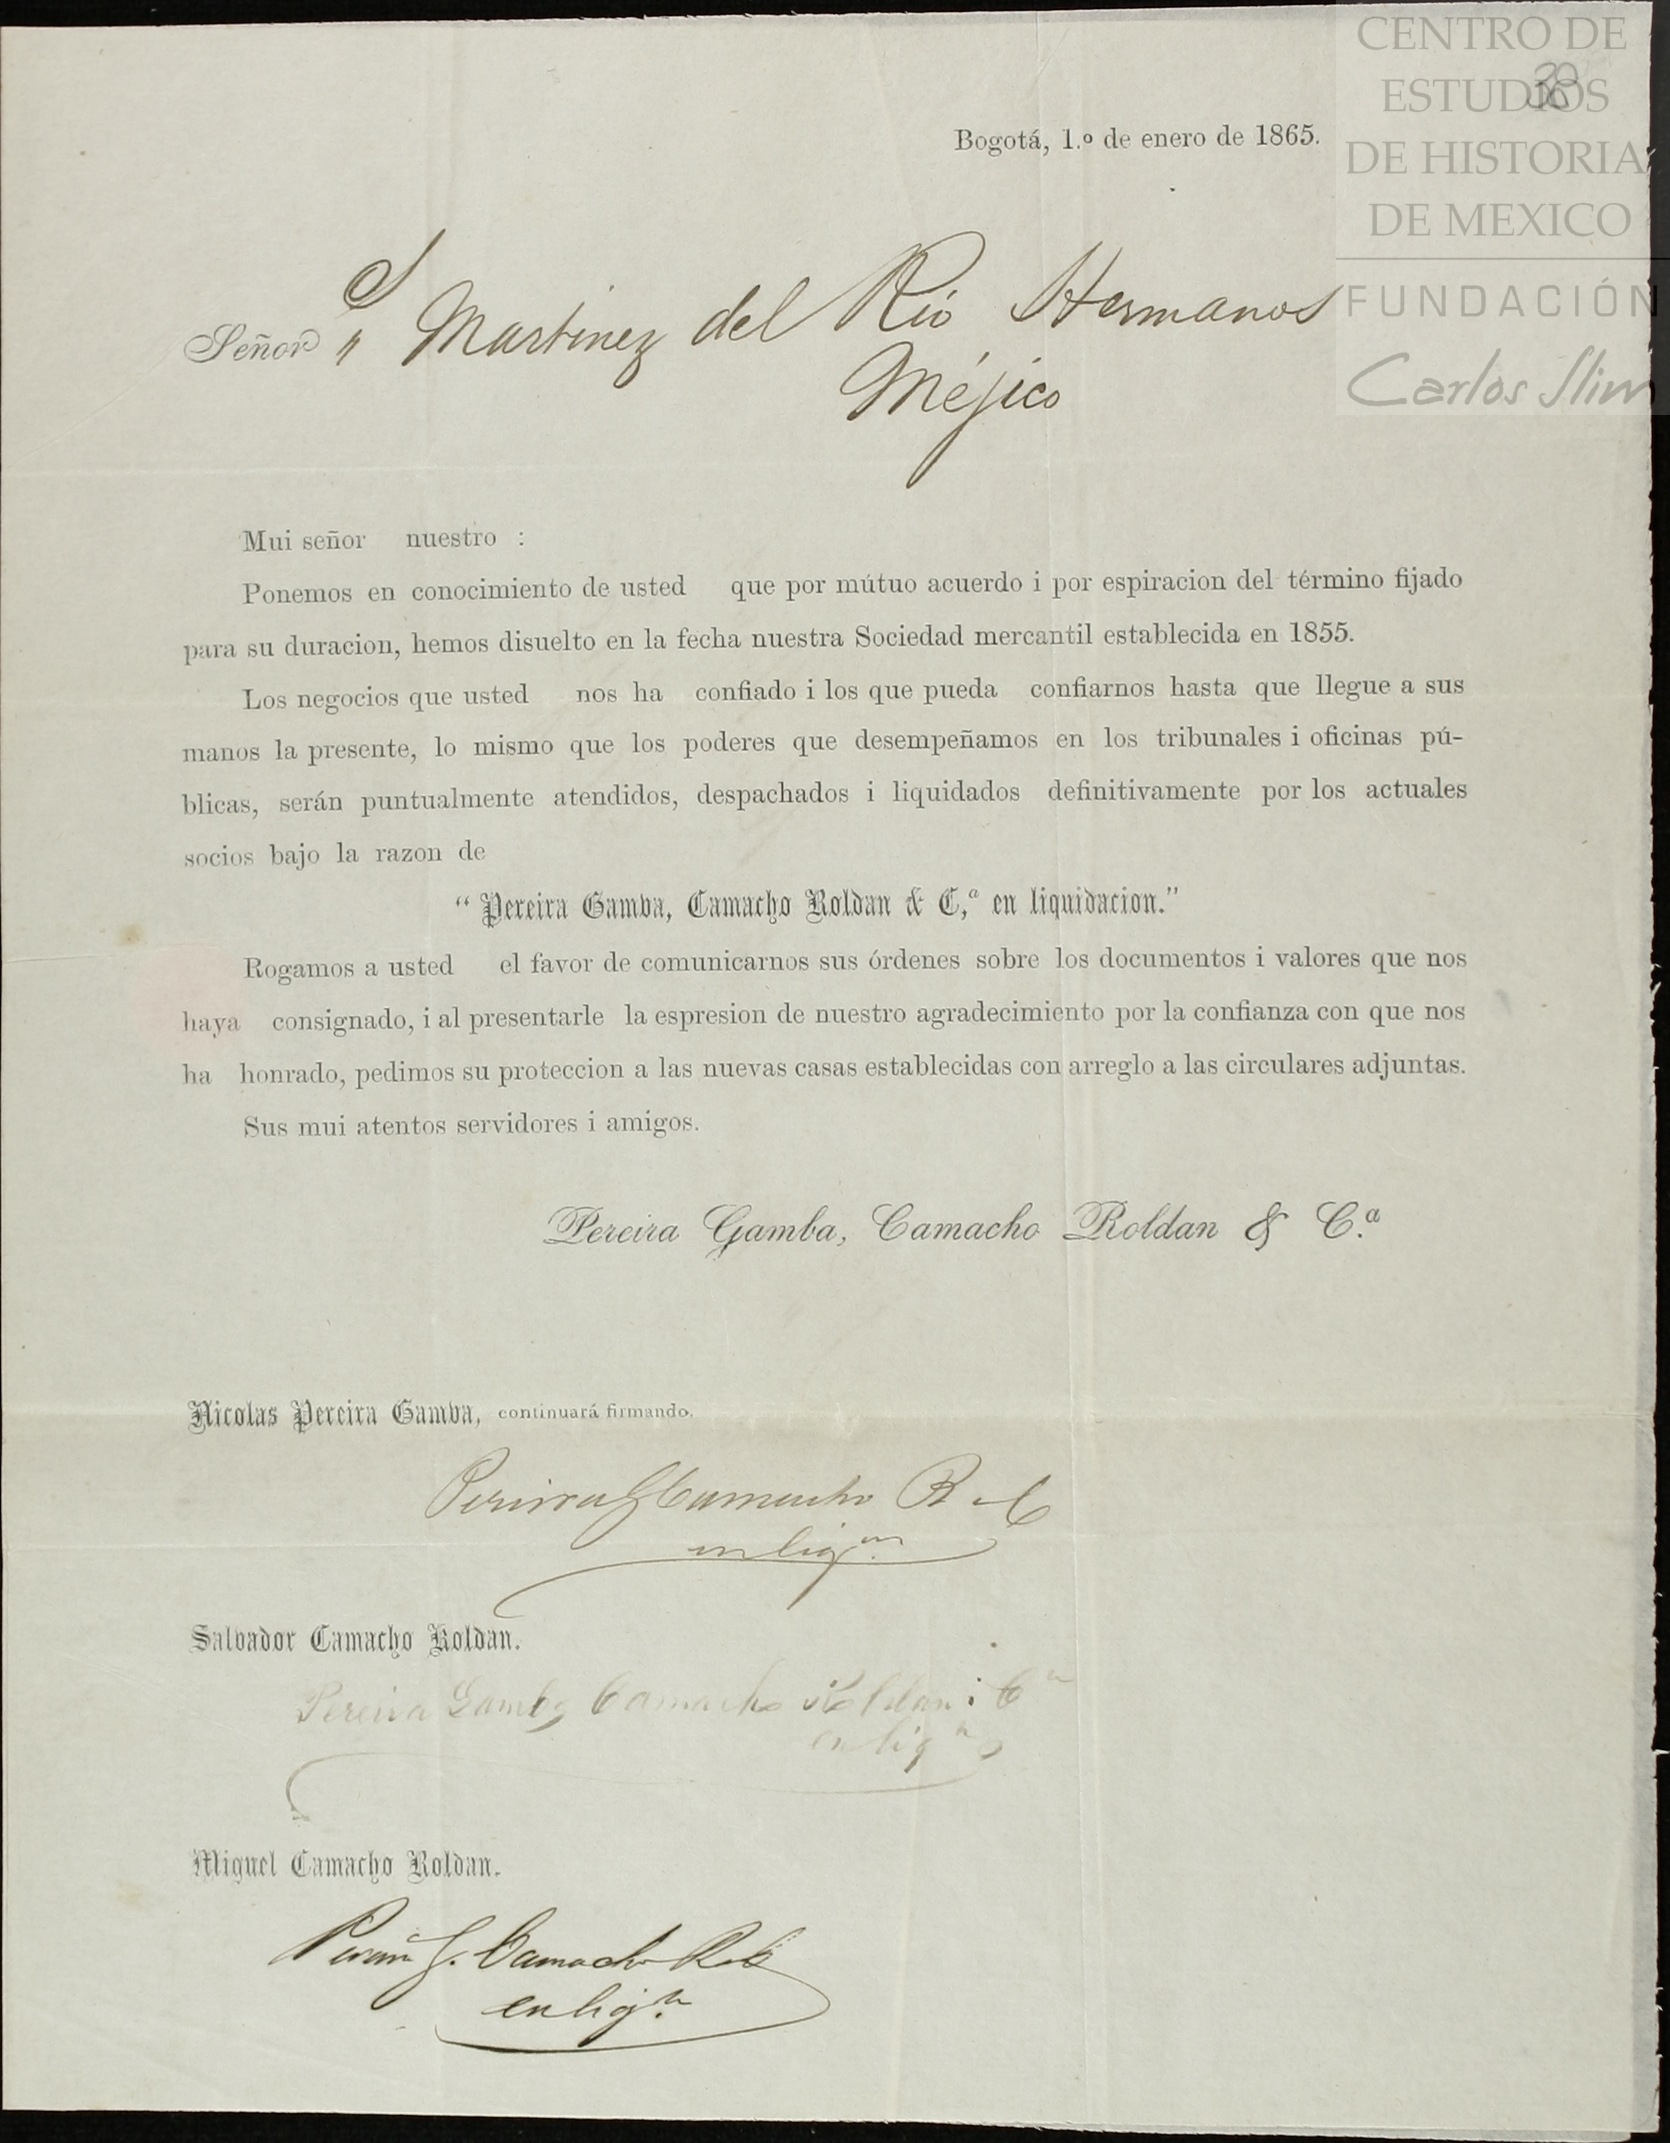 CENTRO DE
ESTUDIOS
DE HISTORIA
DE MEXICO
FUNDACIÓN
Carlos Slim
38
Bogotá, 1.º de enero de 1865.
Señor S Martinez del Rio Hermanos
Méjico
Mui señor nuestro :
Ponemos en conocimiento de usted que por mútuo acuerdo i por espiracion del término fijado
para su duracion, hemos disuelto en la fecha nuestra Sociedad mercantil establecida en 1855.
Los negocios que usted nos ha confiado i los que pueda confiarnos hasta que llegue a sus
manos la presente, lo mismo que los poderes que desempeñamos en los tribunales i oficinas pú-
blicas, serán puntualmente atendidos, despachados i liquidados definitivamente por los actuales
socios bajo la razon de
“ Pereira Gamba, Camacho Roldan & C,ª en liquidacion.”
Rogamos a usted el favor de comunicarnos sus órdenes sobre los documentos i valores que nos
haya consignado, i al presentarle la espresion de nuestro agradecimiento por la confianza con que nos
ha honrado, pedimos su proteccion a las nuevas casas establecidas con arreglo a las circulares adjuntas.
Sus mui atentos servidores i amigos.
Pereira Gamba, Camacho Roldan & C.ª
Nicolas Pereira Gamba, continuará firmando.
Pereira G Camacho R y C
en liqon
Salvador Camacho Roldan.
Pereira Gamba Camacho Roldan i Ca
en liqn
Miguel Camacho Roldan.
Pereira G. Camacho R. &
en liqn.